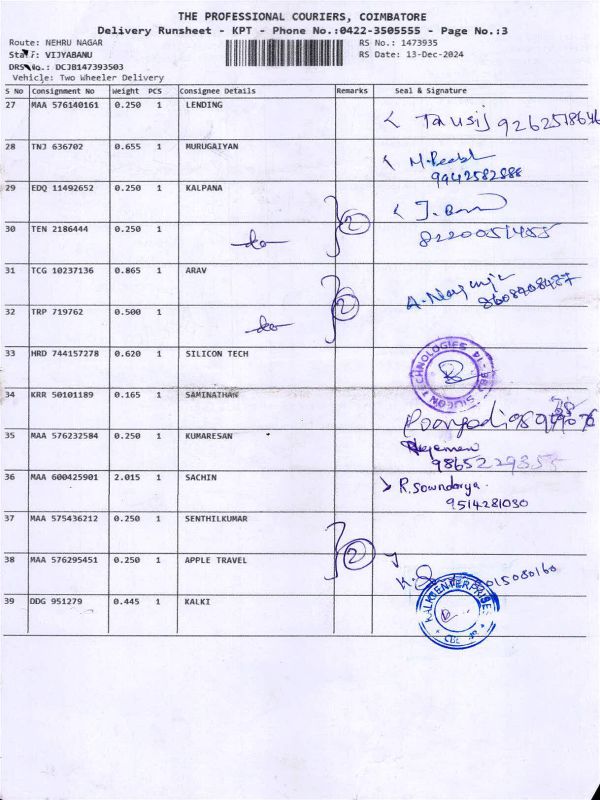 THE PROFESSIONAL COURIERS, COIMBATORE
Delivery Runsheet - KPT - Phone No.:0422-3505555 - Page No.:3
Route: NEHRU NAGAR RS No.: 1473935
Staff: VIJYABANU RS Date: 13-Dec-2024
DRS No.: DCJB147393503
Vehicle: Two Wheeler Delivery
S No Consignment No Weight PCS Consignee Details Remarks Seal & Signature
27 MAA 576140161 0.250 1 LENDING
28 TNJ 636702 0.655 1 MURUGAIYAN
9442582888
29 EDQ 11492652 0.250 1 KALPANA
2
30 TEN 2186444 0.250 1 do
31 TCG 10237136 0.865 1 ARAV
2
32 TRP 719762 0.500 1 do
33 HRD 744157278 0.620 1 SILICON TECH
SILICON TECHNOLOGIES
34 KRR 50101189 0.165 1 SAMINATHAN
35 MAA 576232584 0.250 1 KUMARESAN
36 MAA 600425901 2.015 1 SACHIN R. Sowndarya.
9514281030
37 MAA 575436212 0.250 1 SENTHILKUMAR
2
38 MAA 576295451 0.250 1 APPLE TRAVEL
39 DDG 951279 0.445 1 KALKI
KALKI ENTERPRISES